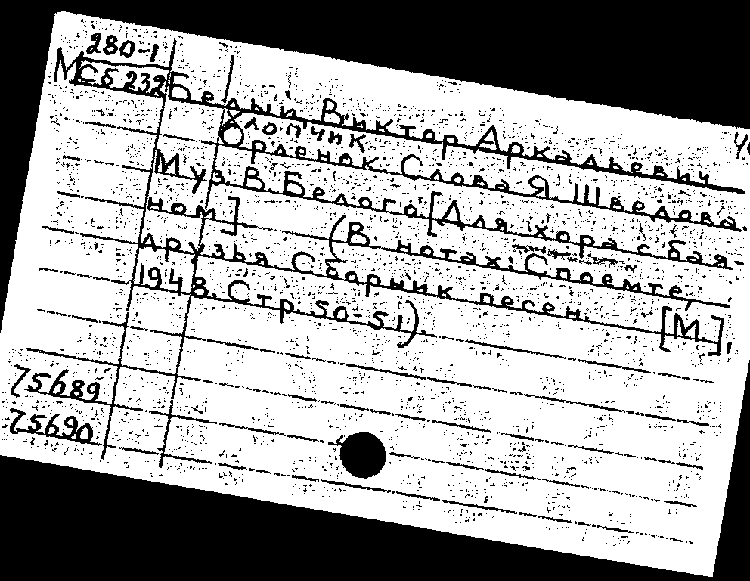 280-1
М Сб 232
Белый Виктор Аркадьевич
Хлопчик
Орленок. Слова Я. Шведова.
Муз. В. Белого [Для хора с бая-
ном]. (В нотах: Споемте,
друзья Сборник песен. [М],
1948. Стр. 50-51).
75689
75690